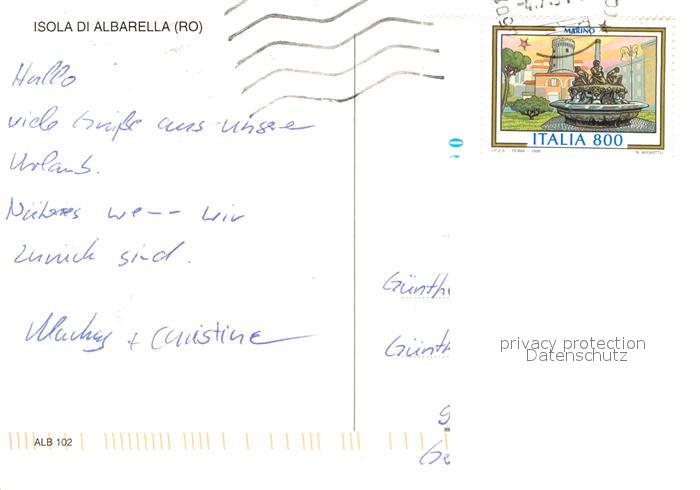 ISOLA DI ALBARELLA (RO)
Hallo
viele Grüße aus unsere
Urlaub.
Näheres we-- wir
zurück sind.
Markus + Christine
MARINO
ITALIA 800
I.P.Z.S. ROMA
Günth
Günth
privacy protection
Datenschutz
ALB 102